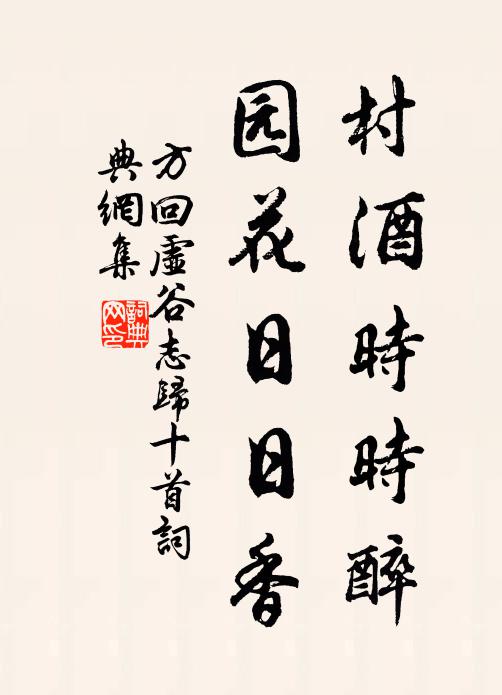 村酒時時醉
园花日日香
方回虛谷志歸十首詞
典網集
詞典網印